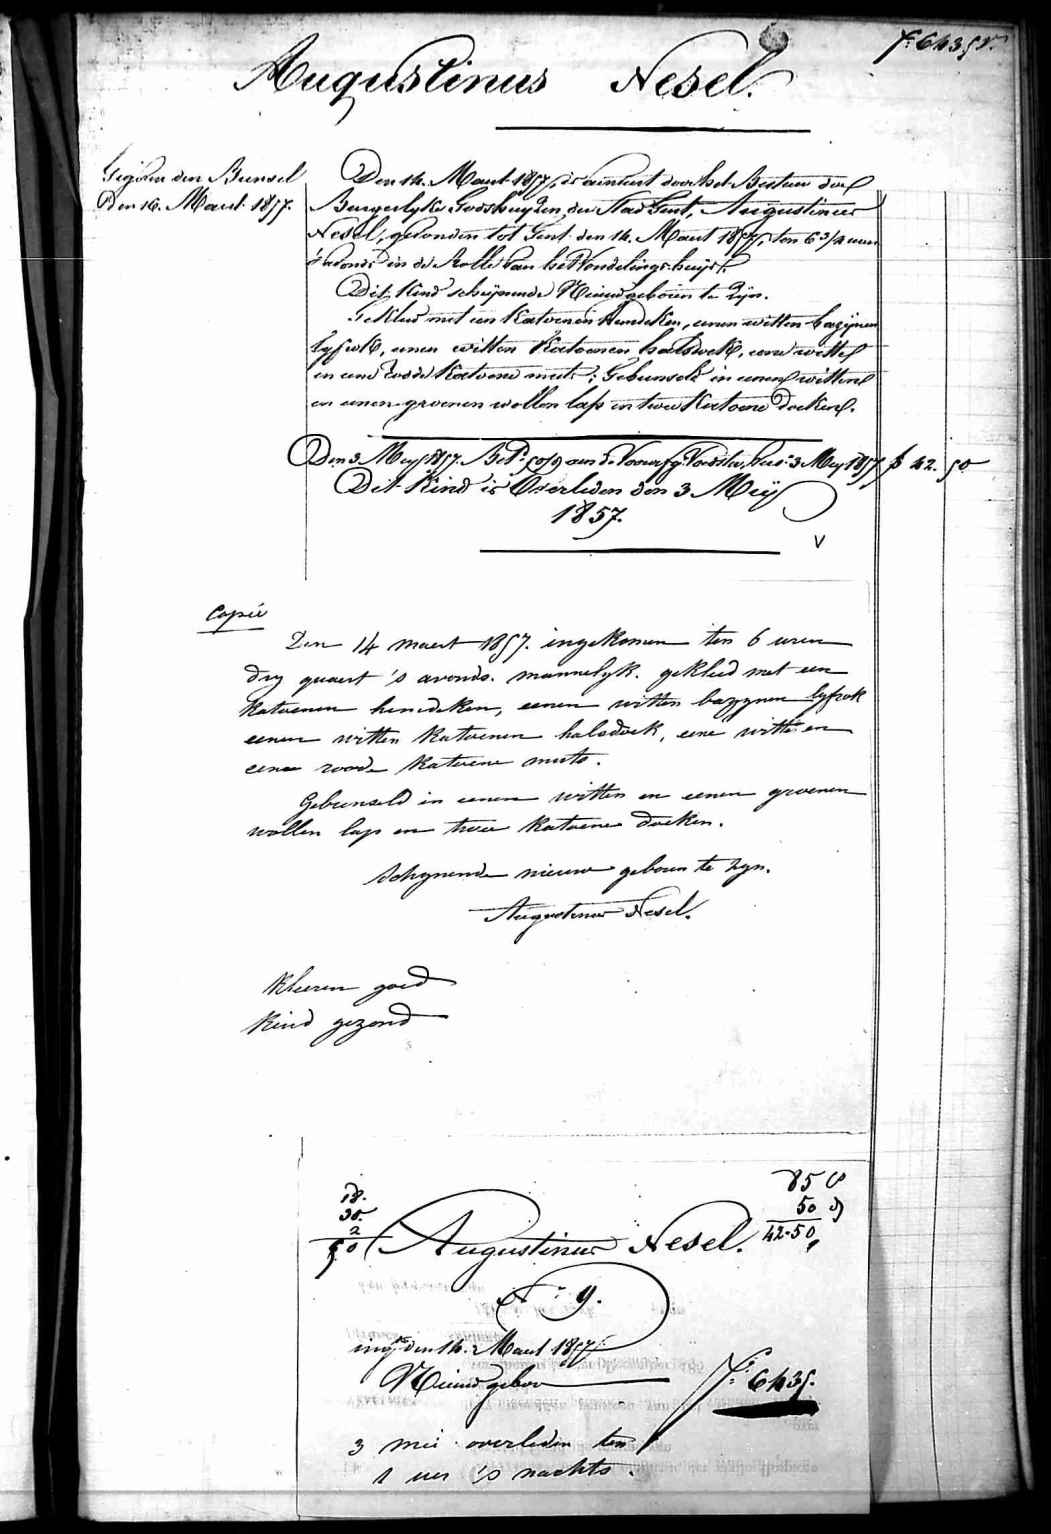 fo 6435 vo
Augustinus Nesel.
Gegeven den Bunsel
Den 16. Maart 1857.
Den 14. Maart 1857, is aenveert door het Bestuur der
Burgerlyke Godshuyzen der Stad Gent, Augustinus
Nesel, gevonden tot Gent den 14. Maart 1857, ten 6 3/4 uren
s'avonds in de Rolle van het Vondelingshuys.
Dit Kind schijnende Nieuwgeboren te Zijn.
Gekleed met een Katoenen Hemdeken, eenen witten bazijnen
lyfrok, eenen witten Katoenen halsdoek, eene witte
en eene roode Katoene muts; Gebunseld in eenen witten
en eenen groenen wollen lap en twee Katoene doeken.
Den 3 Mey 1857. Bet. aen de Voorsz. Voedster, 3 Mey 1857 f 42. 50
Dit Kind is Overleden den 3 Meij
1857.
V
Copie
Den 14 maert 1857. ingekomen ten 6 uren
dry quaert 's avonds. mannelyk. gekleed met een
katoenen hemdeken, eenen witten bazynen lyfrok
eenen witten katoenen halsdoek, eene witte en
eene roode katoene muts.
Gebunseld in eenen witten en eenen groenen
wollen lap en twee katoene doeken.
Schynende nieuw geboren te zyn.
Augustinus Nesel.
Kleeren goed
Kind gezond
18.
30.
2
50
85
50
42-50
Augustinus Nesel.
No 9.
ing. den 14. Maart 1857
Nieuwgebor
fo 6435.
3 mei overleden ten
1 uer 's nachts.